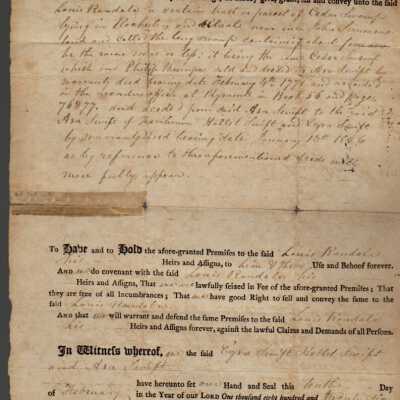 grant, bargain, sell and convey unto the said
Louis Randals a certain lot or parcel of Cedar Swamp
lying in Rochester and situate near over John Simmons
land and called the long swamp containing about four acres
be the same more or less; it being the same Cedar Swamp
which Philip Thumper sold and deeded to Asa Swift by
warranty deed bearing date February 4th 1771 and recorded
in the records at Plymouth in Book 56 and pages
76 & 77. and deeded from said Asa Swift to the said
Asa Swift of Hallet Swift and Ezra Swift
by warranty deed bearing date January 1826
as by reference to the aforementioned deeds will
more fully appear.
To Have and to Hold the afore-granted Premises to the said Louis Randals
his Heirs and Assigns, to him & their Use and Behoof forever.
AND we do covenant with the said Louis Randals his
Heirs and Assigns, That we are lawfully seized in Fee of the afore-granted Premises; That
they are free of all Incumbrances; That we have good Right to sell and convey the same to the
said Louis Randals
AND that we will warrant and defend the same Premises to the said Louis Randals
his Heirs and Assigns forever, against the lawful Claims and Demands of all Persons.
In Witness whereof, we the said Ezra Swift Hallet Swift
and Asa Swift
have hereunto set our Hand and Seal this tenth Day
of February in the Year of our LORD One thousand eight hundred and